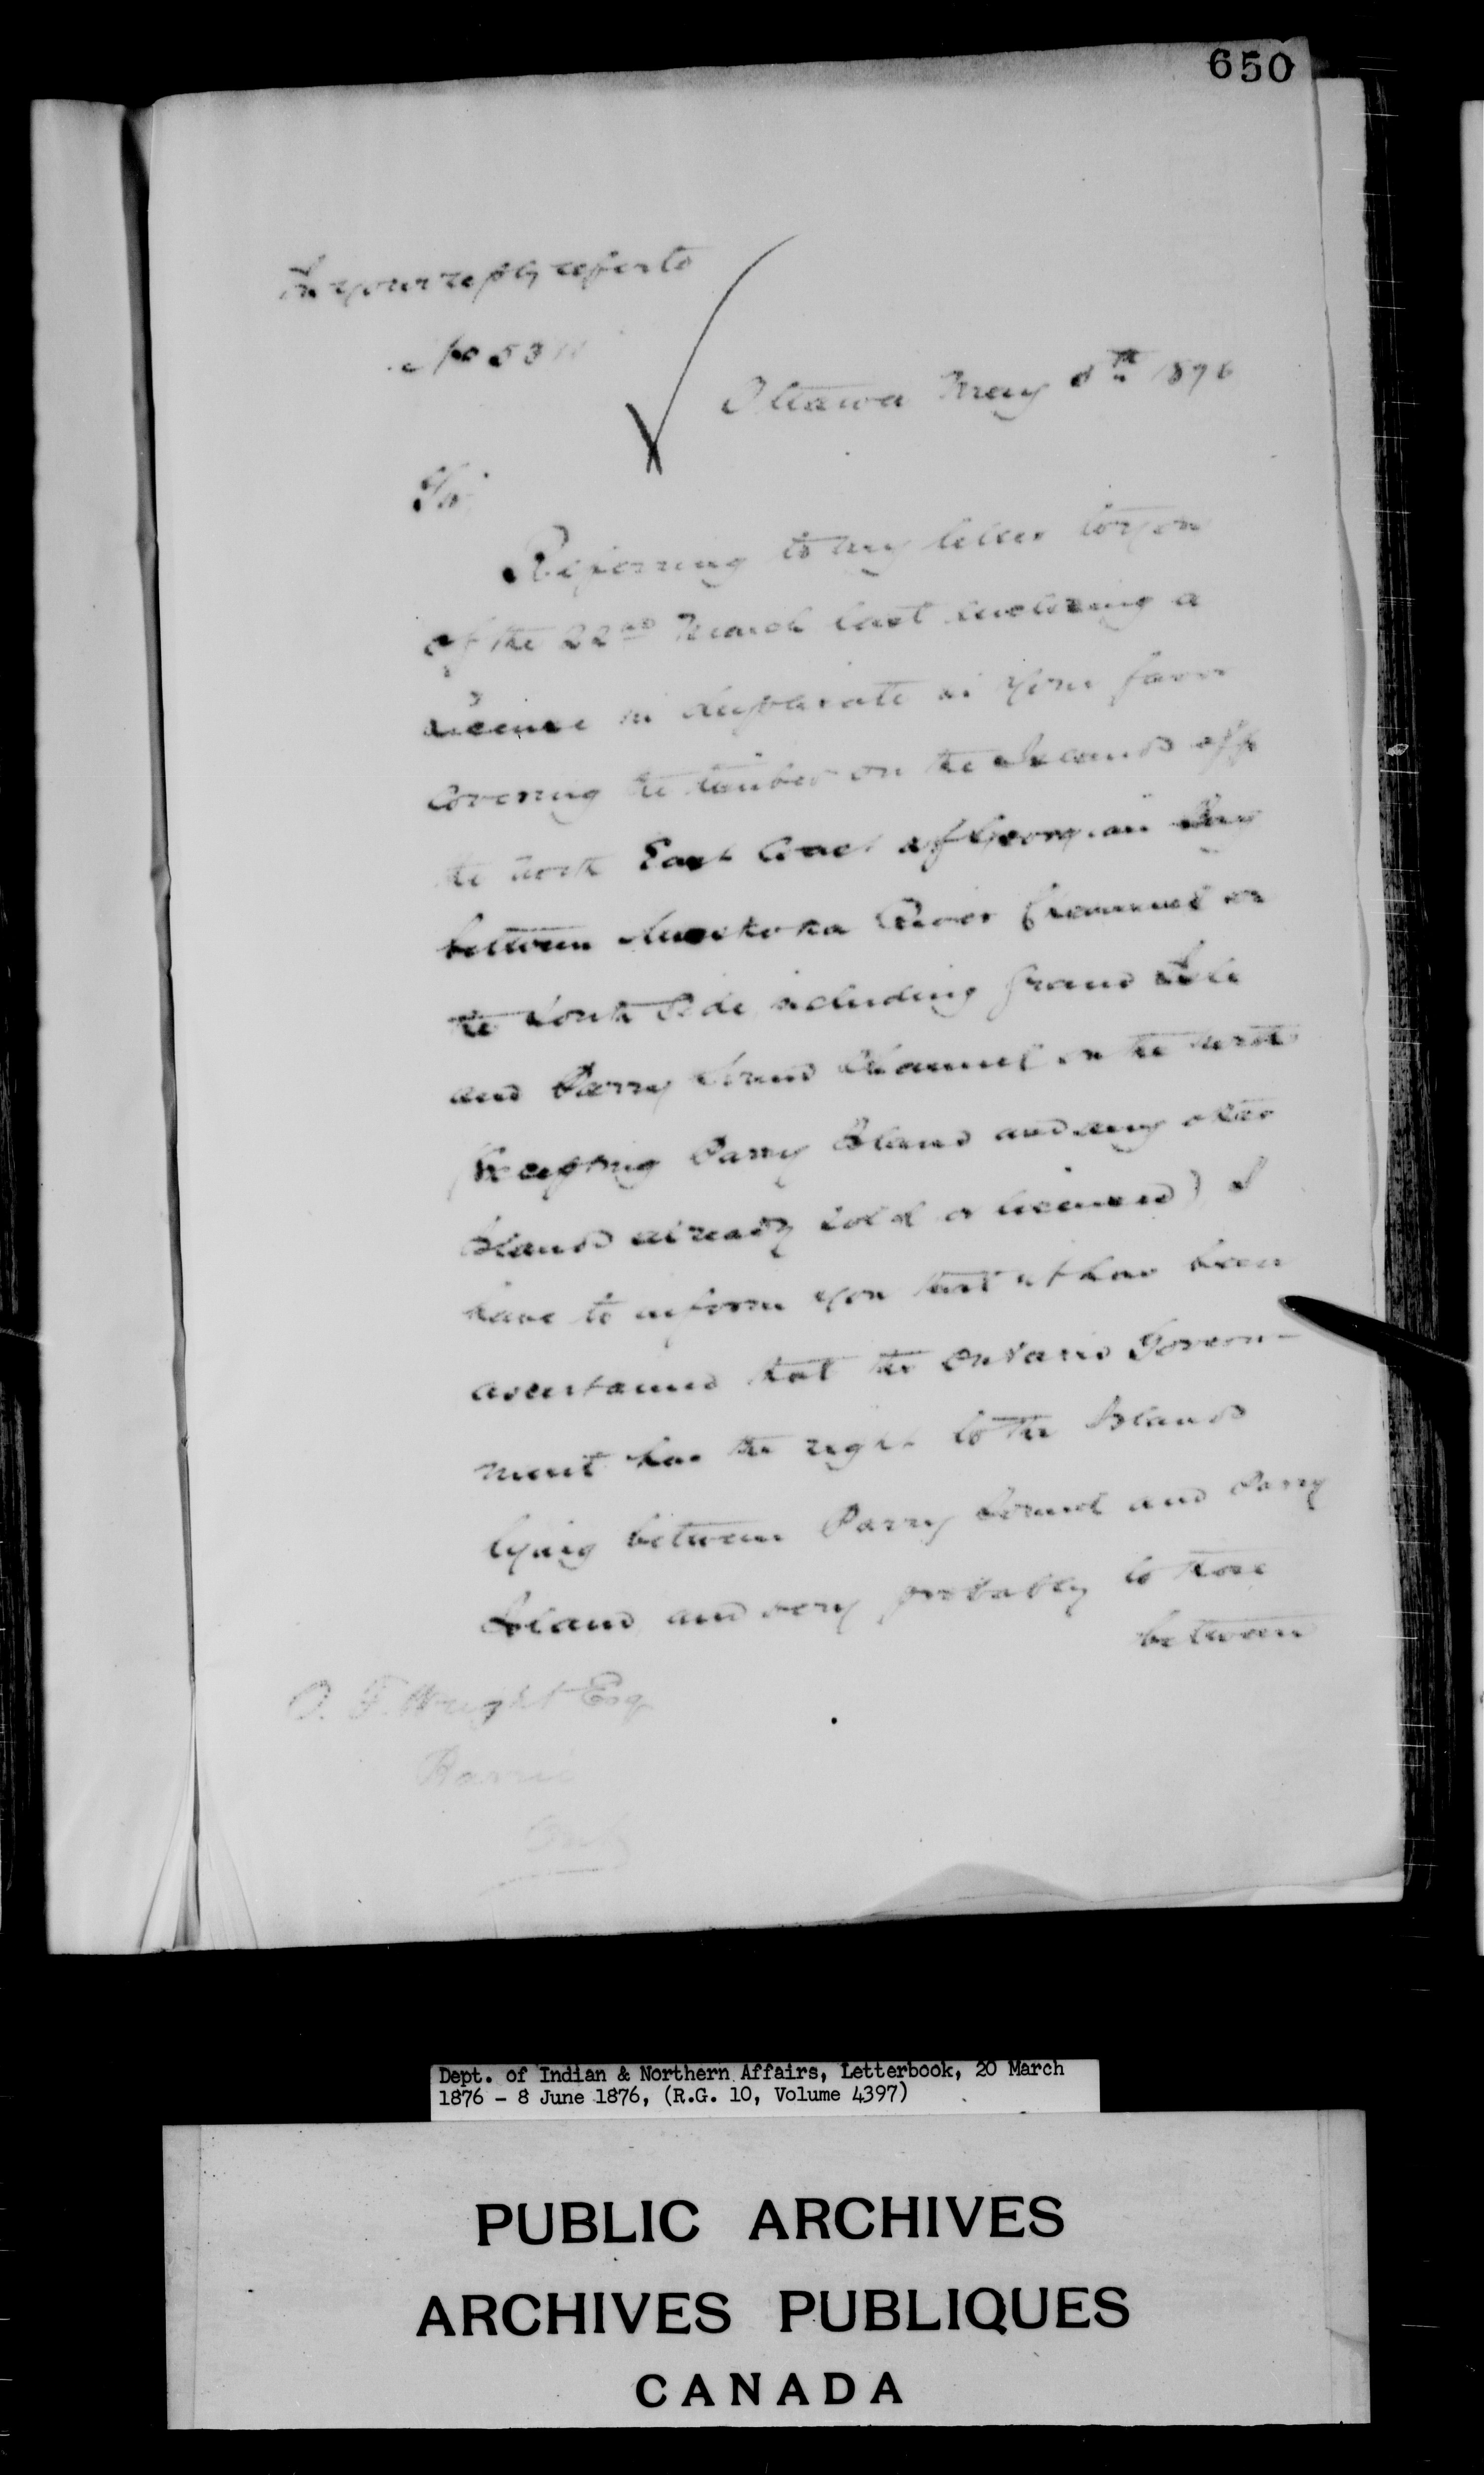 650
In your reply refer to
No 53
Ottawa May 8th 1876
Sir,
Referring to my letter to you
of the 22nd March last enclosing a
license in duplicate in your favor
covering the timber on the Islands off
the North East Coast of Georgian Bay
between Muskoka River Channel on
the South Side, including Grand Isle
and Parry Sound Channel on the North
(Excepting Parry Island and any other
Islands already sold or licensed) I
have to inform you that it has been
ascertained that the Ontario Govern-
ment has the right to the Islands
lying between Parry Sound and Parry
Island and very probably to those
between
O. F. Wright Esq
Barrie
Ont
Dept. of Indian & Northern Affairs, Letterbook, 20 March
1876 - 8 June 1876, (R.G. 10, Volume 4397)
PUBLIC ARCHIVES
ARCHIVES PUBLIQUES
CANADA